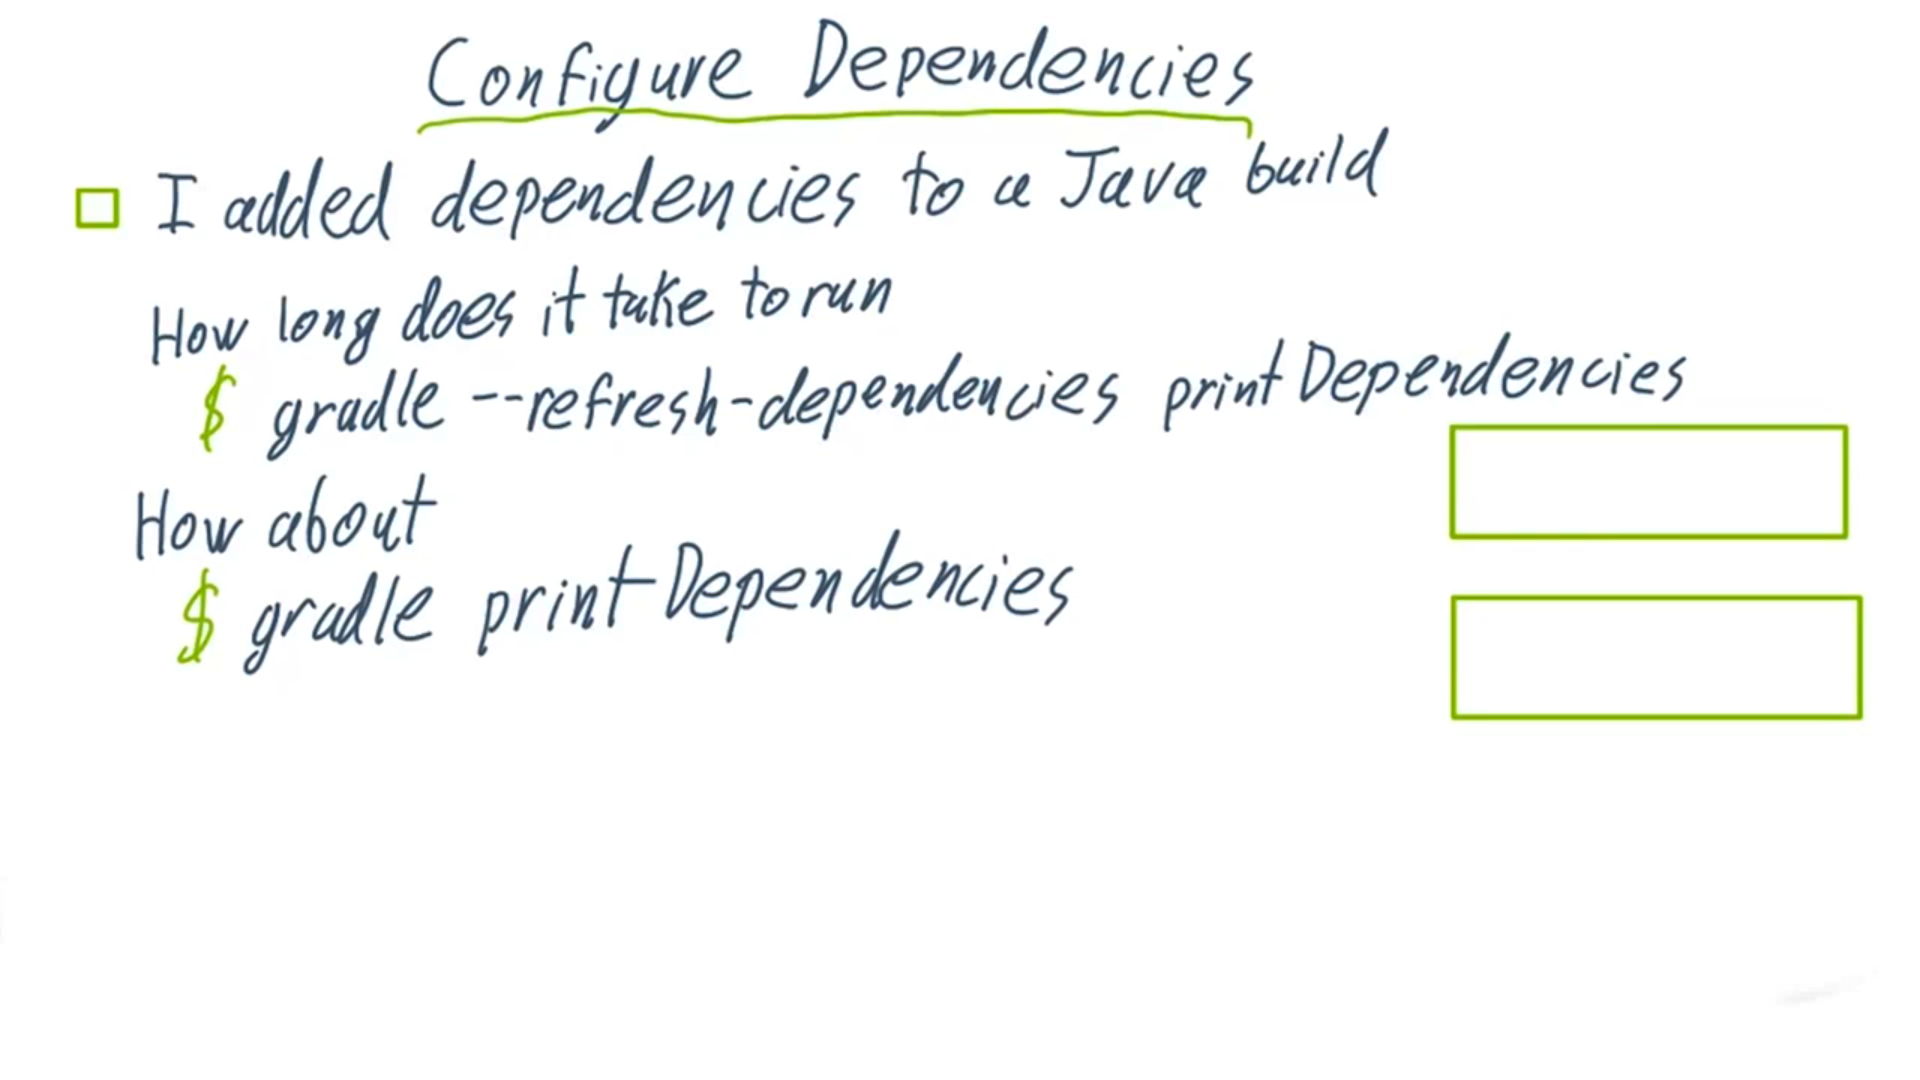 Configure Dependencies
I added dependencies to a Java build
How long does it take to run
$ gradle --refresh-dependencies printDependencies
How about
$ gradle printDependencies